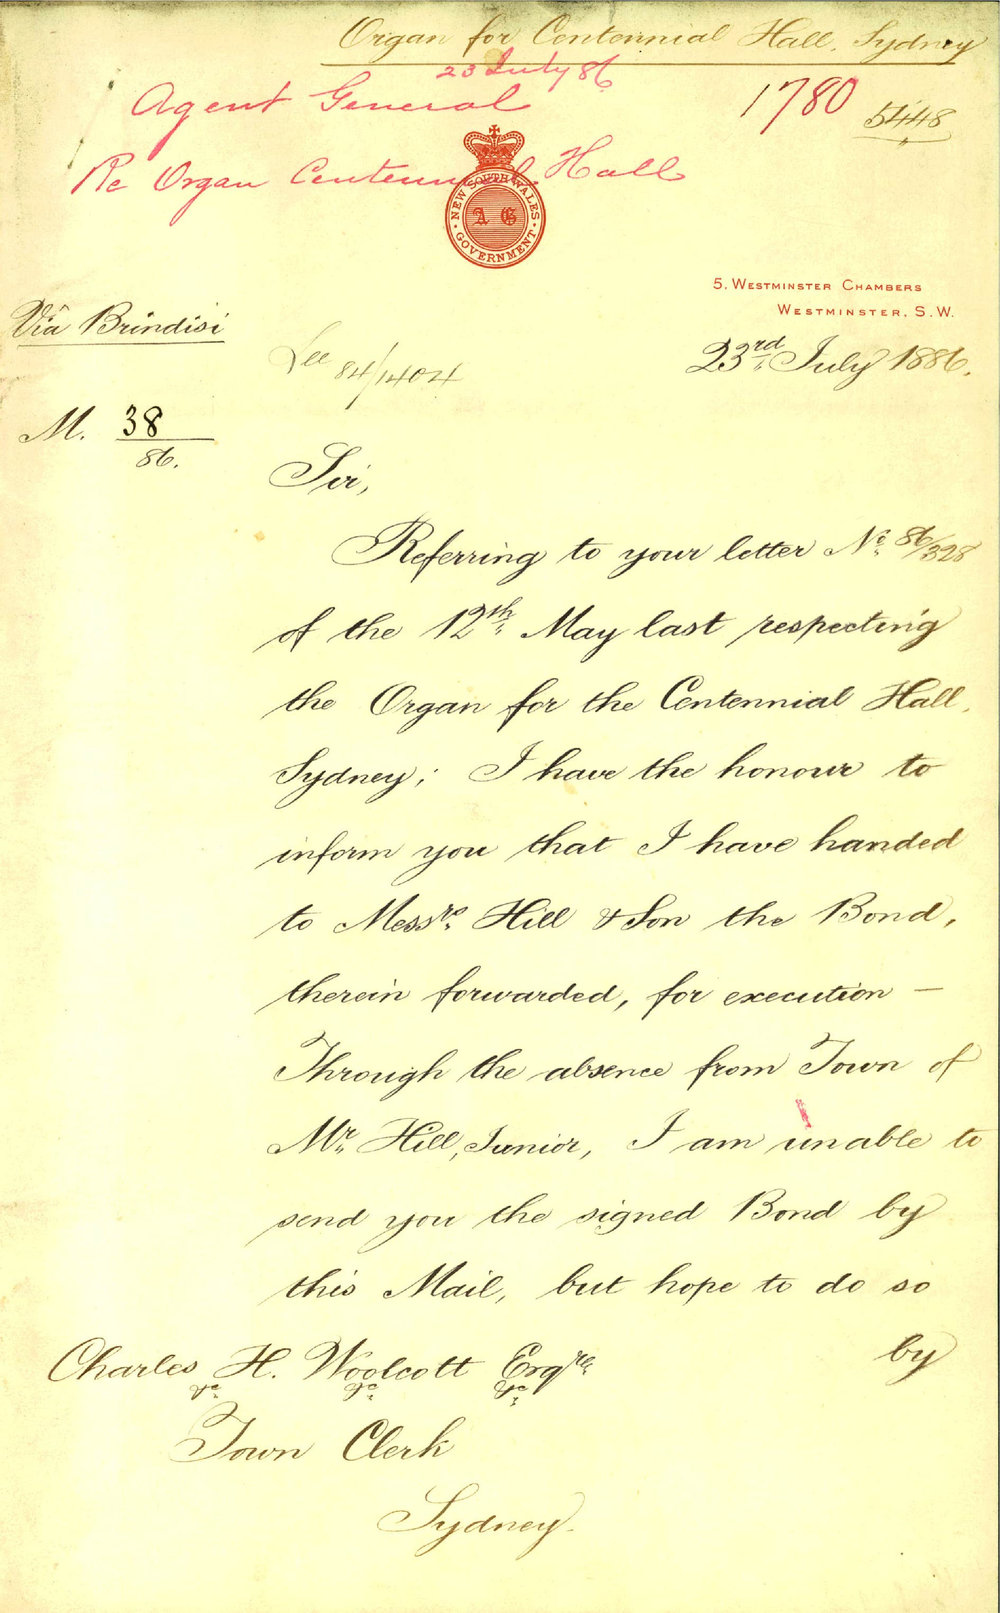 Organ for Centennial Hall, Sydney
23 July 86
Agent General
1780
5448
Re Organ Centennial Hall
NEW SOUTH WALES
A G
GOVERNMENT
5. Westminster Chambers
Westminster, S.W.
Viâ Brindisi
23rd July 1886.
See 84/1404
M. 38
86.
Sir,
Referring to your letter No. 86/328
of the 12th May last respecting
the Organ for the Centennial Hall,
Sydney; I have the honour to
inform you that I have handed
to Messrs. Hill & Son the Bond,
therein forwarded, for execution —
Through the absence from Town of
Mr. Hill, Junior, I am unable to
send you the signed Bond by
this Mail, but hope to do so
by
Charles H. Woolcott Esqre
&c. &c. &c.
Town Clerk
Sydney.